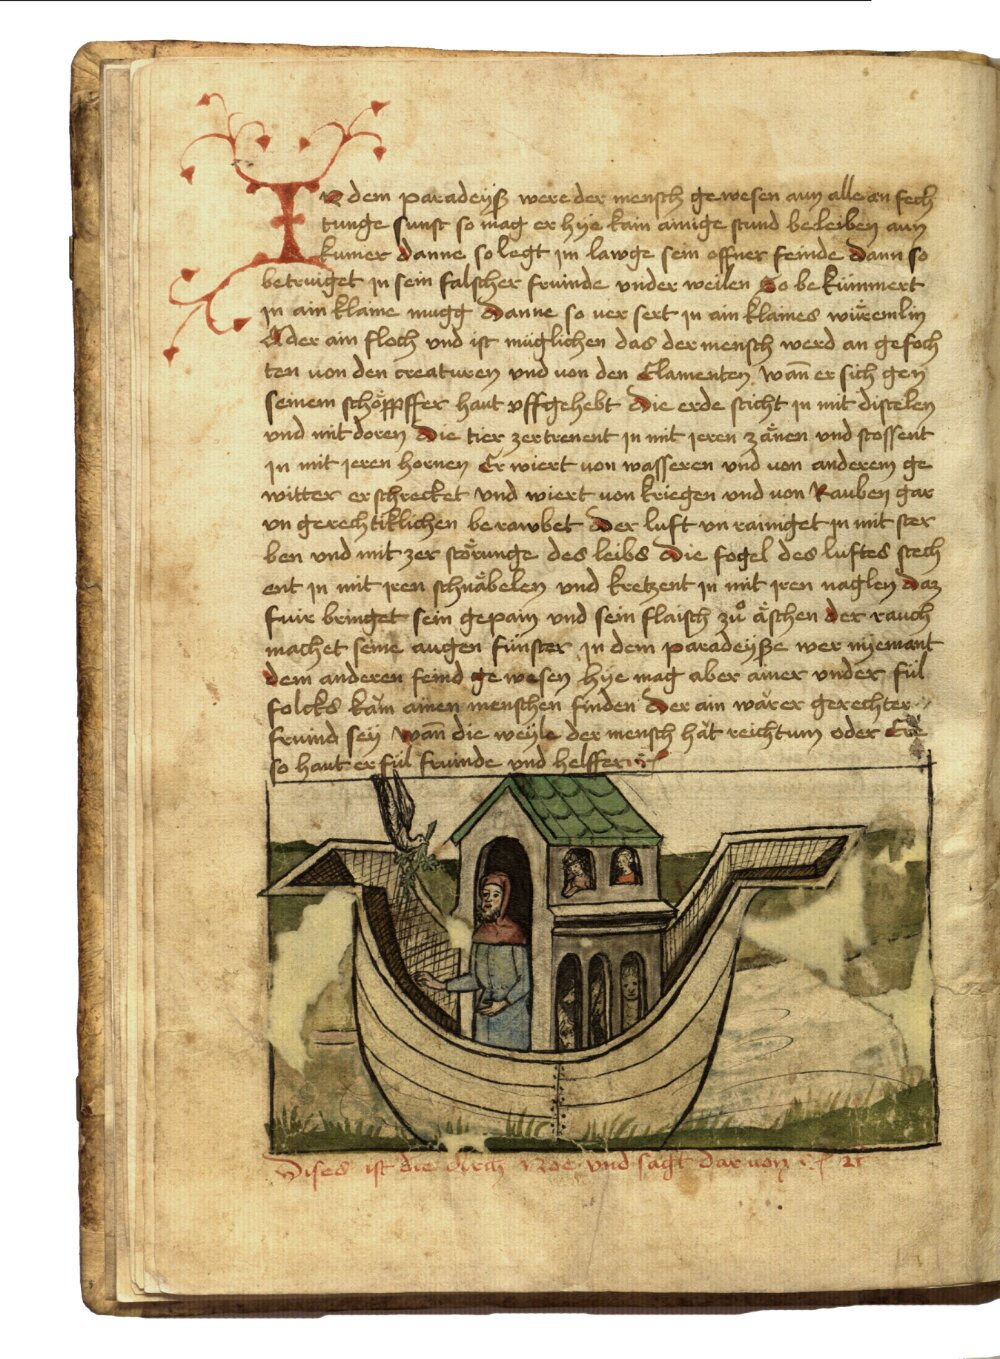 In dem paradeyß were der mensch gewesen aun alle an fech
tunge sunst so mag er hye kain ainige stund beleiben aun
kumer Danne so legt jm lawge sein offner feinde Dann so
betruiget jn sein falscher fruinde vnder weilen So bekümmert
jn ain klaine mugg Danne so ver sert jn ain klaines würemlin
Oder ain floch vnd ist müglichen das der mensch werd an gefoch
ten von den creaturen vnd von den Elamenten wann er sich gen
seinem schöppffer haut vffgehebt Die erde sticht jn mit distelen
vnd mit doren Die tier zertrenent jn mit jeren zänen vnd stossent
jn mit jeren hornen Er wiert von wasseren vnd von anderem ge
witter erschrecket vnd wiert von kriegen vnd von Rauben gar
vn gerechtiklichen berawbet Der luft vn rainiget jn mit ster
ben vnd mit zer störunge des leibs Die fogel des luftes stech
ent jn mit jren schnäbelen vnd kretzent jn mit jren naglen Daz
fuir bringet sein gepain vnd sein flaisch zů äschen Der rauch
machet seine augen fünster jn dem paradeyße wer nyemant
dem anderen feind gewesen hye mag aber ainer vnder fül
folcks kam ainen menschen finden Der ain wärer gerechter
fruind sey Wann die weyle der mensch hät reichtum oder Ere
so haut er fül fruinde vnd helffer
Dises ist die Arch Noe vnd sagt dar von 21